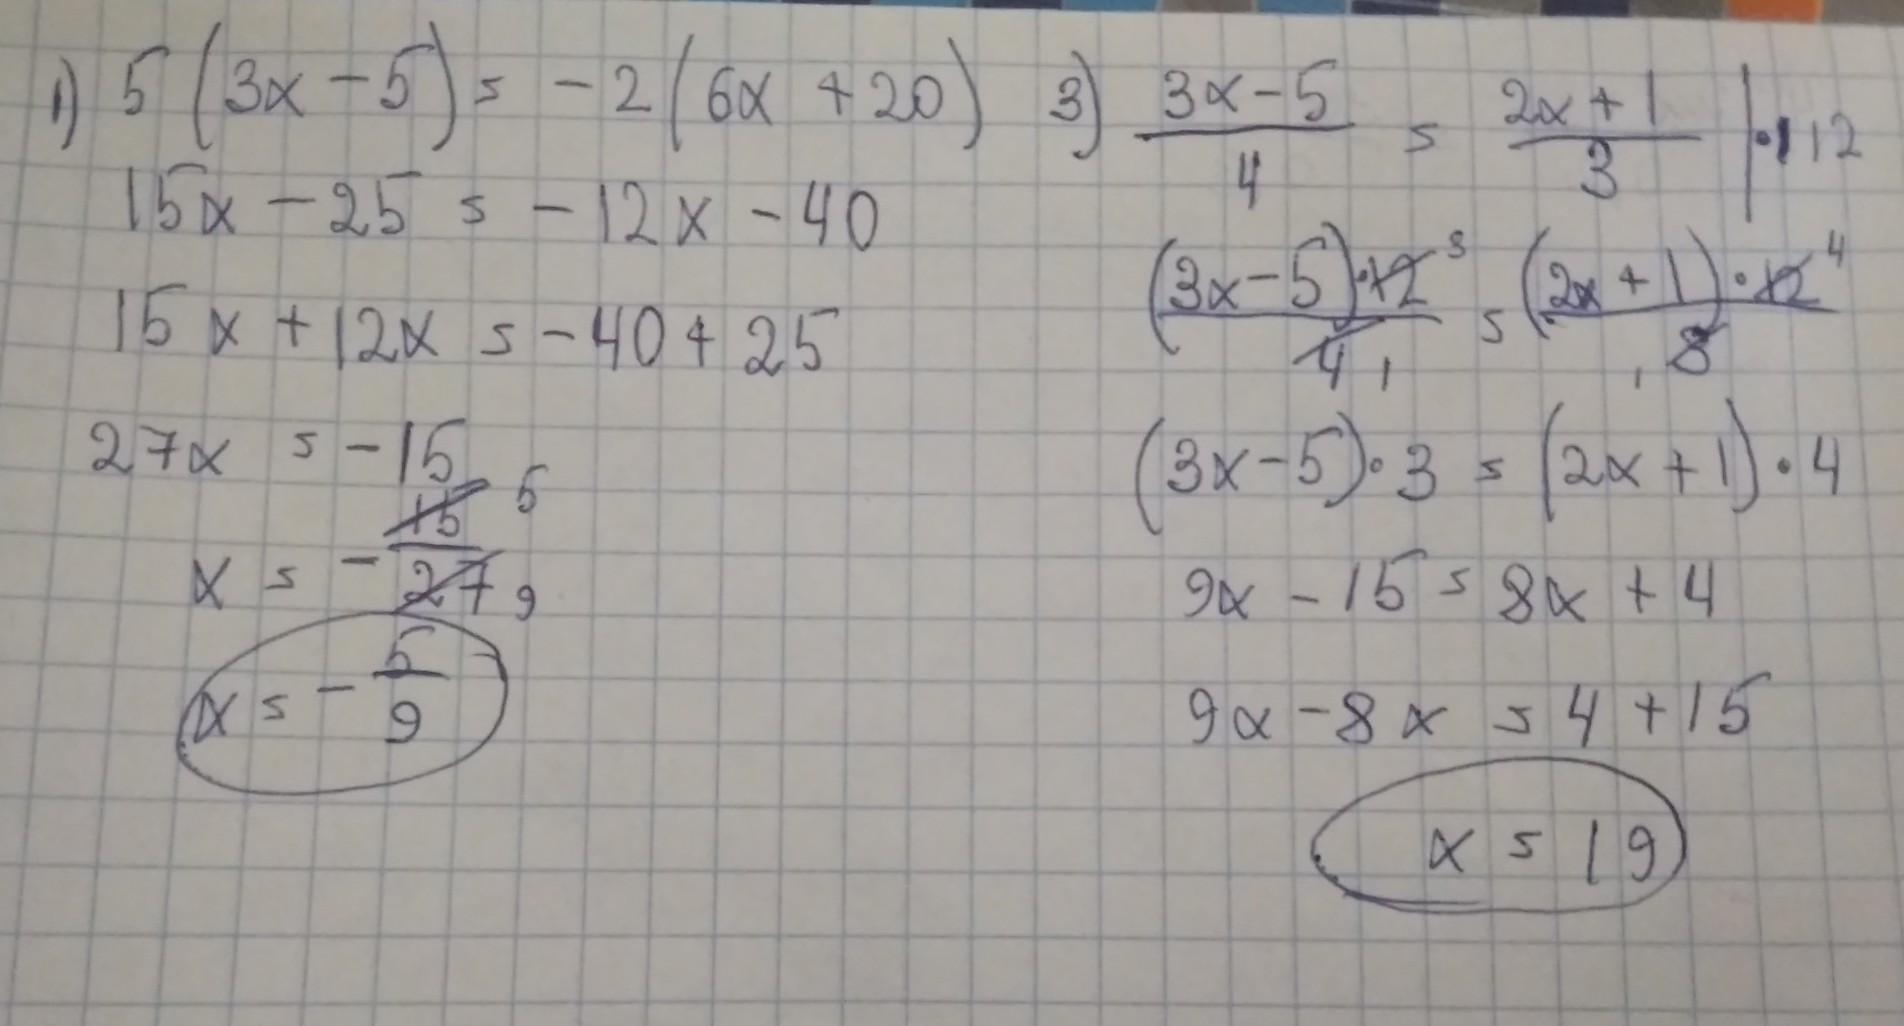 1) 5(3x-5) = -2(6x+20)
15x - 25 = -12x - 40
15x + 12x = -40 + 25
27x = -15
x = -15/27 5 9
x = -5/9
3) (3x-5)/4 = (2x+1)/3 | · 12
(3x-5)·12 3/4 1 = (2x+1)·12 4/3 1
(3x-5)·3 = (2x+1)·4
9x - 15 = 8x + 4
9x - 8x = 4 + 15
x = 19